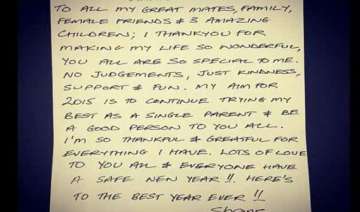 TO ALL MY GREAT MATES, FAMILY,
FEMALE FRIENDS & 3 AMAZING
CHILDREN; I THANKYOU FOR
MAKING MY LIFE SO WONDERFUL,
YOU ALL ARE SO SPECIAL TO ME.
NO JUDGEMENTS, JUST KINDNESS,
SUPPORT & FUN. MY AIM FOR
2015 IS TO CONTINUE TRYING MY
BEST AS A SINGLE PARENT & BE
A GOOD PERSON TO YOU ALL.
I'M SO THANKFUL & GREATFUL FOR
EVERYTHING I HAVE. LOTS OF LOVE
TO YOU ALL & EVERYONE HAVE
A SAFE NEW YEAR !! HERE'S
TO THE BEST YEAR EVER !!
Shane